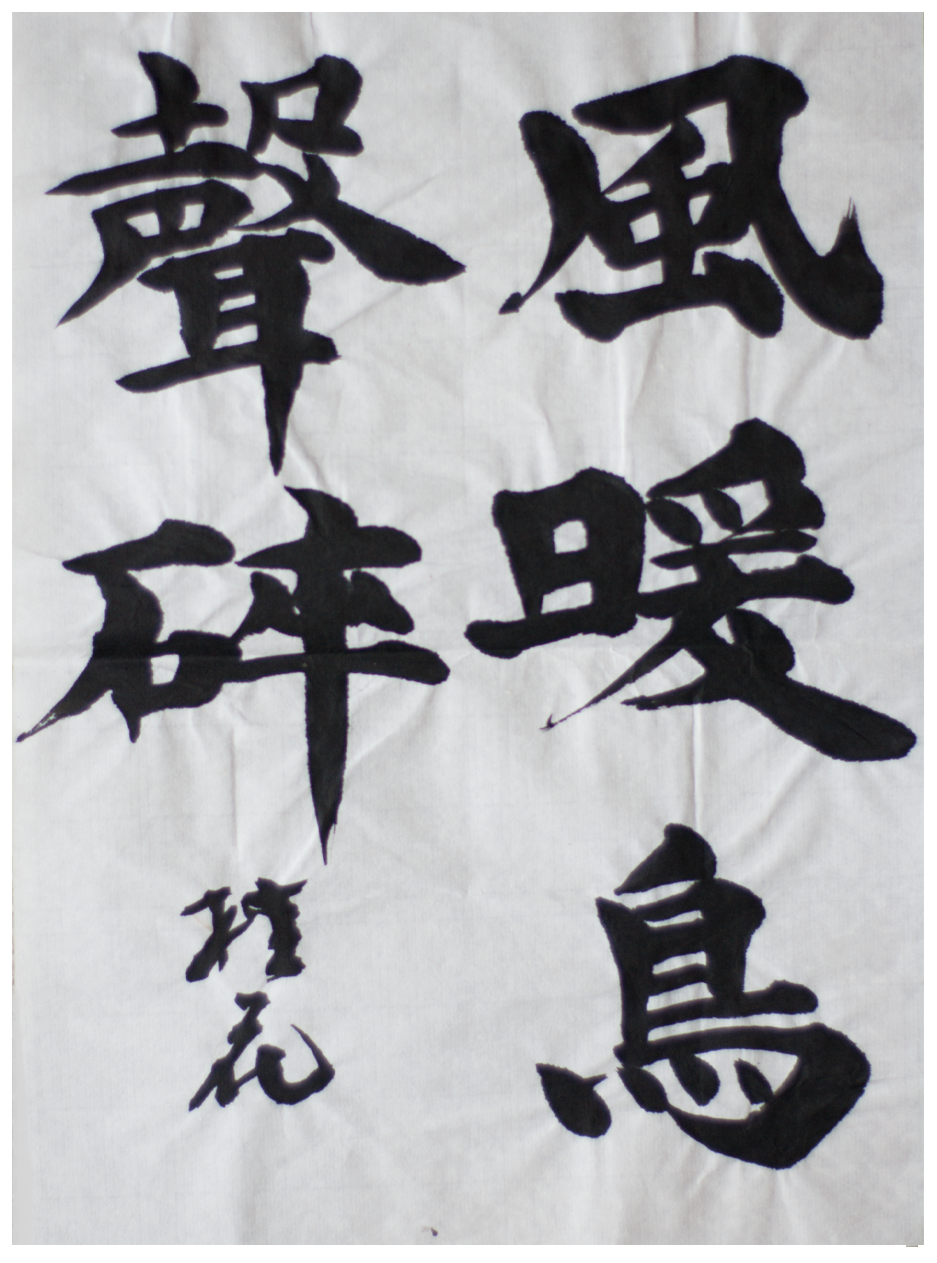 風暖鳥
聲碎
花